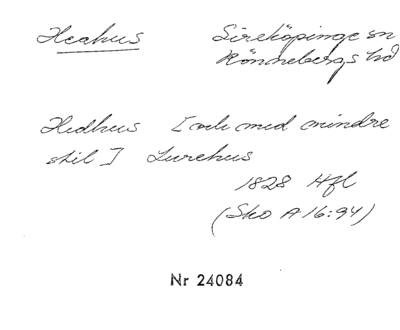 Heahus Sireköpinge sn
Rönnebergs hd
Hedhus [och med mindre
stil] Lurehus
1828 Hfl
(Sko A 16:94)
Nr 24084